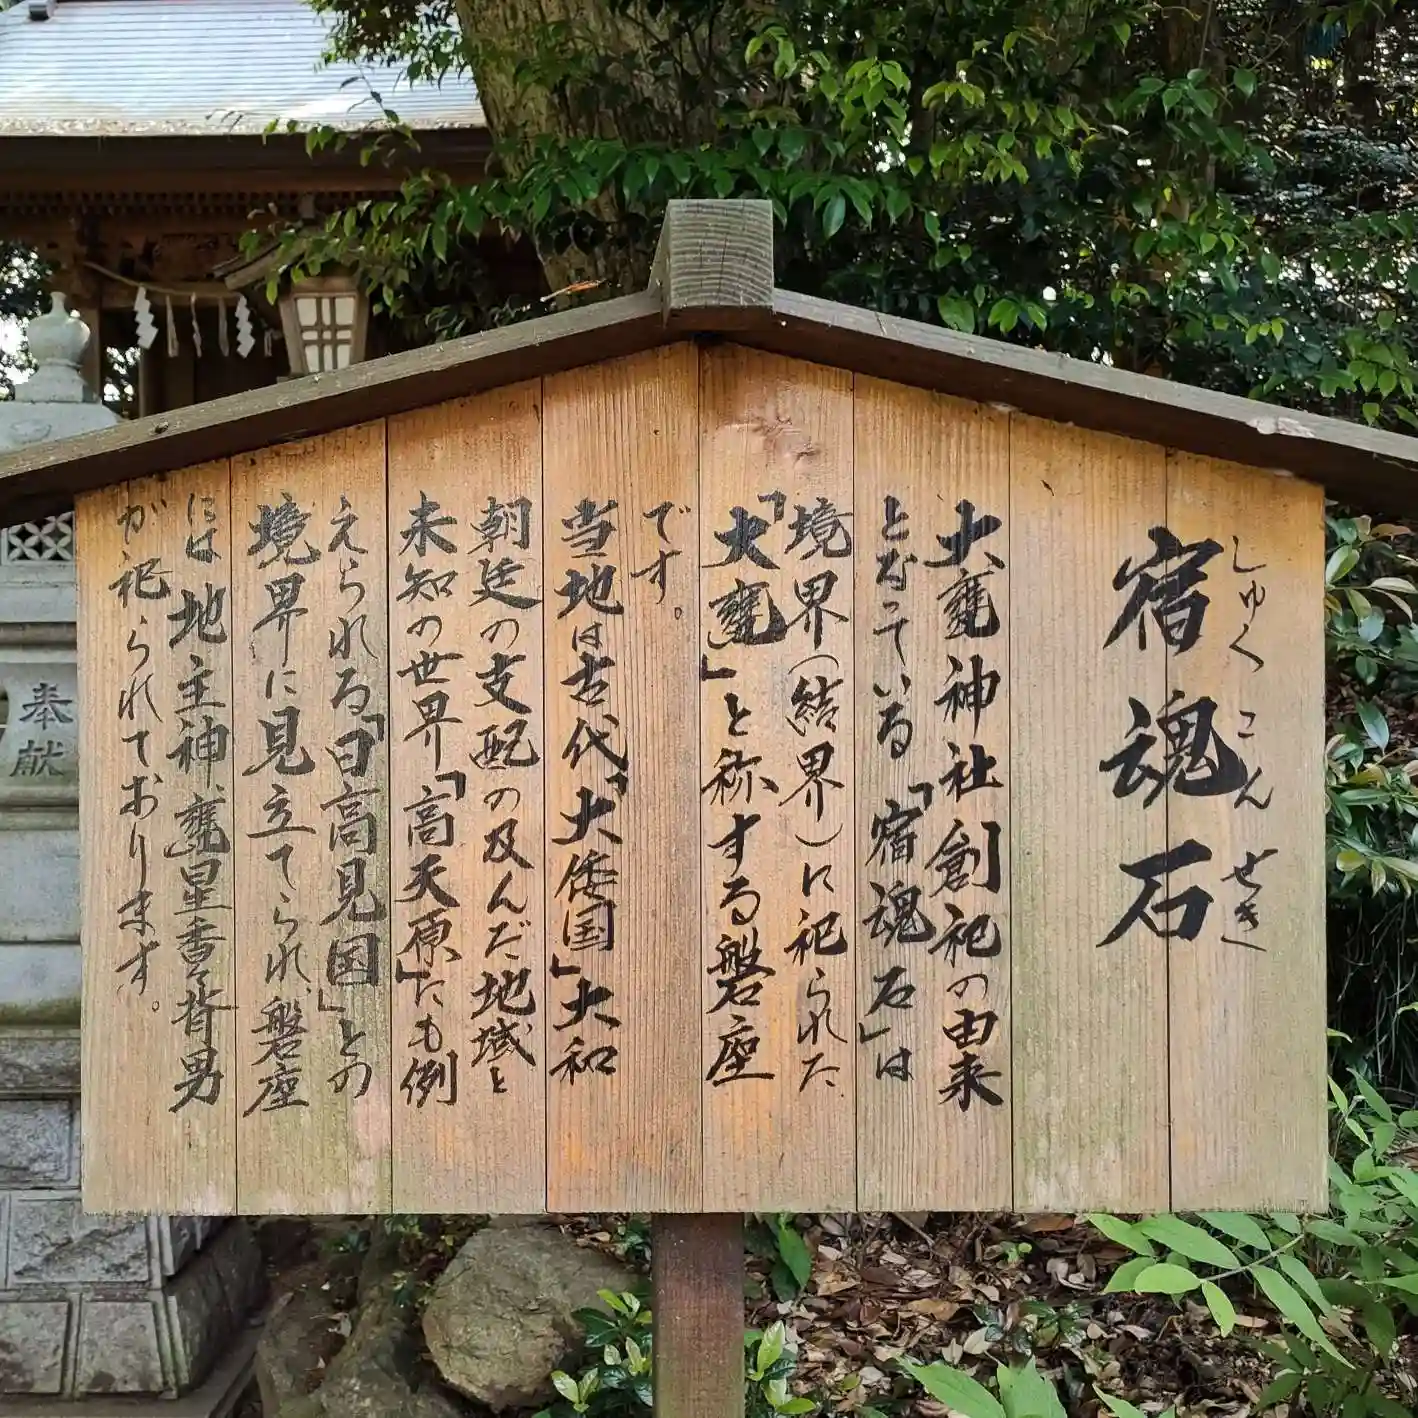 しゅくこんせき
宿魂石
大甕神社創祀の由来
となっている「宿魂石」は
境界(結界)に祀られた
「大甕」と称する磐座
です。
当地は古代「大倭国」大和
朝廷の支配の及んだ地域と
未知の世界「高天原」にも例
えられる「日高見国」との
境界に見立てられ、磐座
には地主神、甕星香々背男
が祀られております。
奉献